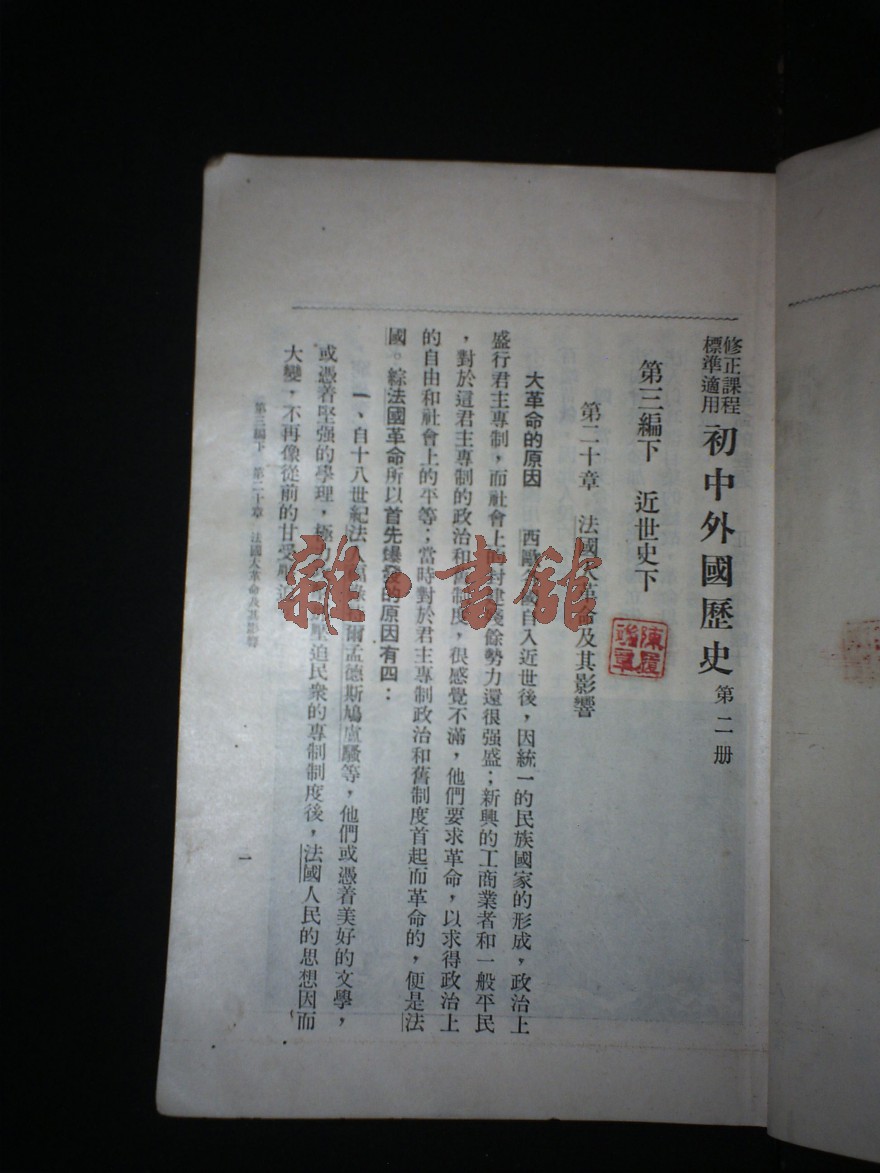 修正課程
標準適用
初中外國歷史 第二册
第三編下 近世史下
第二十章 法國大革命及其影響
大革命的原因 西歐 國自入近世後，因統一的民族國家的形成，政治上
盛行君主專制，而社會上 封建殘餘勢力還很强盛；新興的工商業者和一般平民
，對於這君主專制的政治和舊制度，很感覺不滿，他們要求革命，以求得政治上
的自由和社會上的平等；當時對於君主專制政治和舊制度首起而革命的，便是法
國。綜法國革命所以首先爆發的原因有四：
一、自十八世紀法人 爾孟德斯鳩盧騷等，他們或憑着美好的文學，
或憑着堅强的學理，極力 壓迫民衆的專制制度後，法國人民的思想因而
大變，不再像從前的甘受
第三編下 第二十章 法國大革命及其影響
一
雜·書館